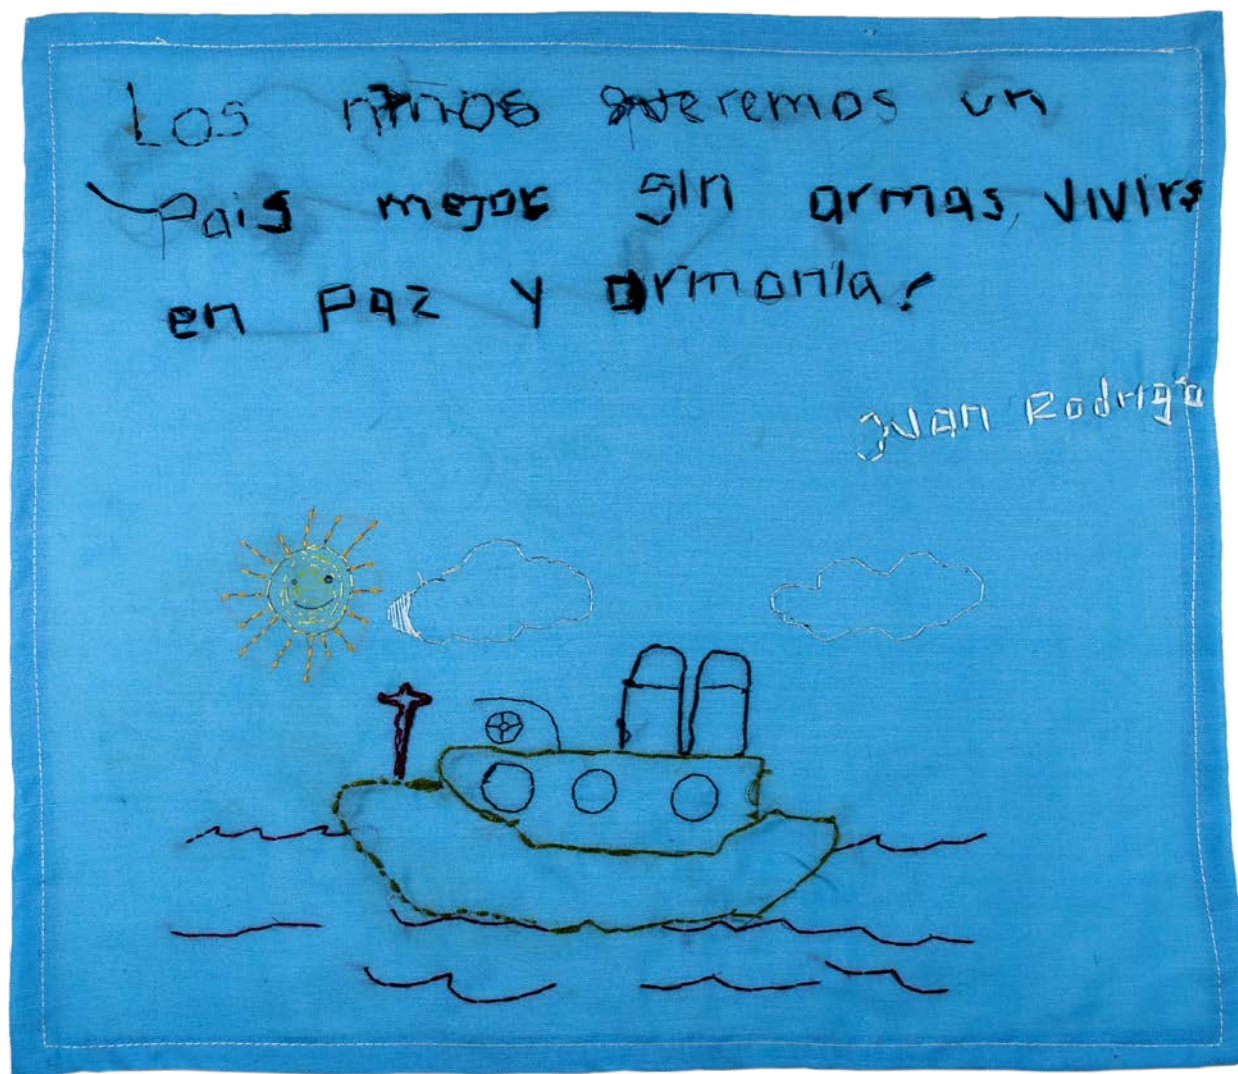 Los niños queremos un
pais mejor sin armas, vivirs
en paz y armonía!
Juan Rodrigo